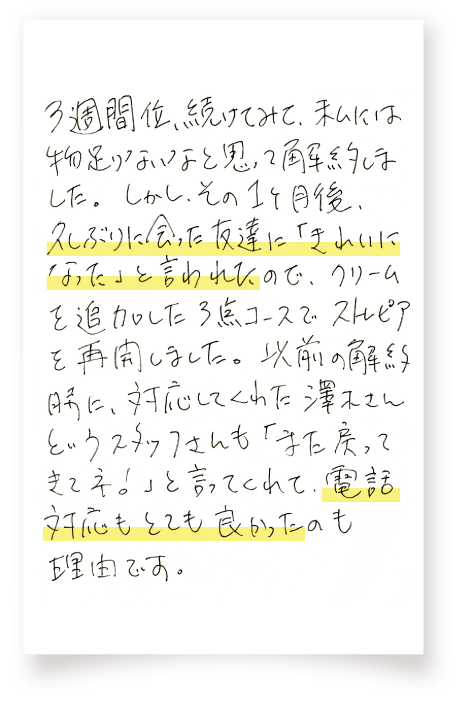 3週間位、続けてみて、私には
物足りないなと思って解約しま
した。しかし、その1ヶ月後、
久しぶりに会った友達に「きれいに
なった」と言われたので、クリーム
を追加した3点コースでストレピア
を再開しました。以前の解約
時に、対応してくれた澤木さん
というスタッフさんも「また戻って
きてネ!」と言ってくれて、電話
対応もとても良かったのも
理由です。